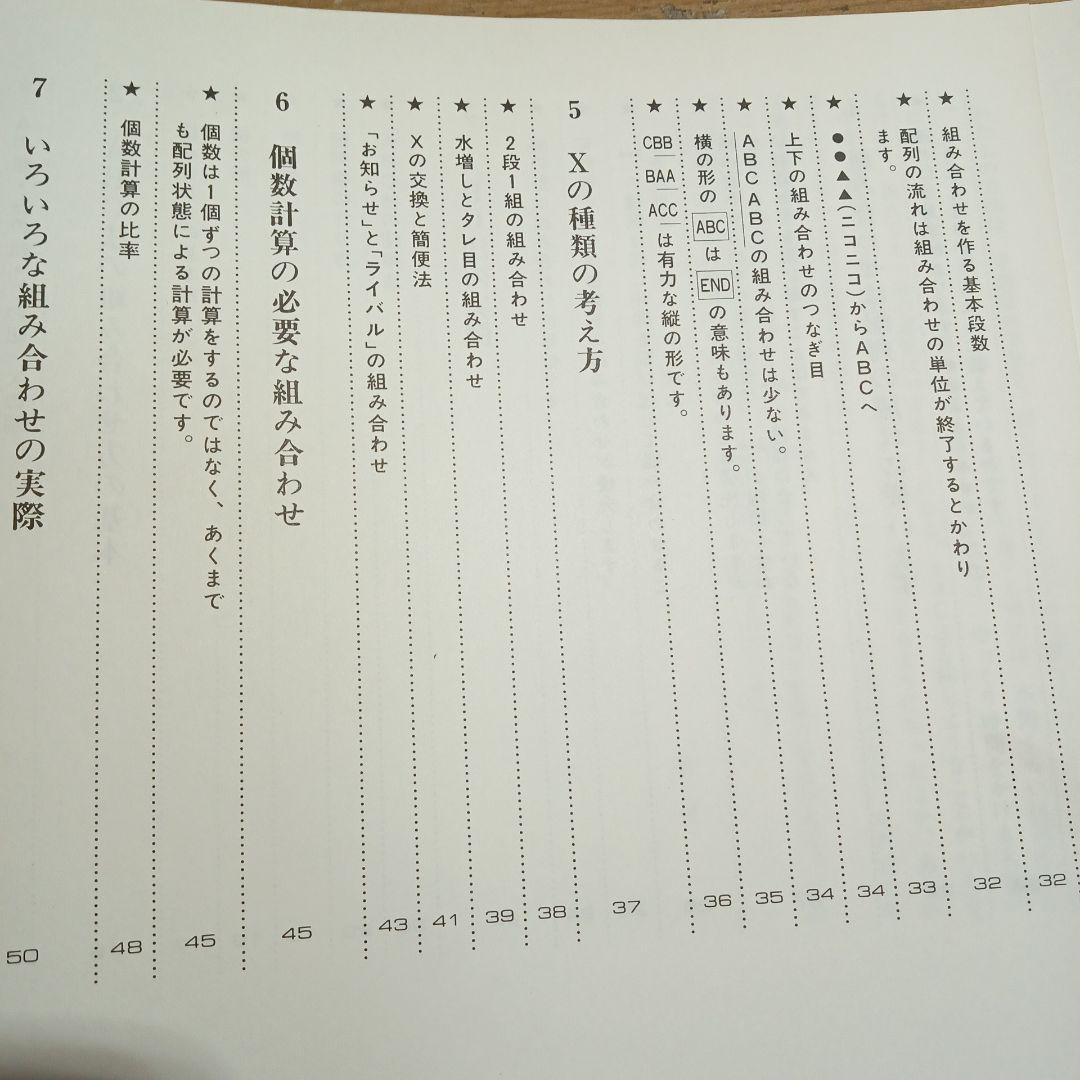 ★ 組み合わせを作る基本段数 32
★ 配列の流れは組み合わせの単位が終了するとかわり
ます。 32
★ ●●▲▲(ニコニコ)からABCへ 33
★ 上下の組み合わせのつなぎ目 34
★ ABCABCの組み合わせは少ない。 34
★ 横の形の ABC は END の意味もあります。 35
★ CBB BAA ACC は有力な縦の形です。 36
5 Xの種類の考え方 37
★ 2段1組の組み合わせ 38
★ 水増しとタレ目の組み合わせ 39
★ Xの交換と簡便法 41
★ 「お知らせ」と「ライバル」の組み合わせ 43
6 個数計算の必要な組み合わせ 45
★ 個数は1個ずつの計算をするのではなく、あくまで
も配列状態による計算が必要です。 45
★ 個数計算の比率 48
7 いろいろな組み合わせの実際 50